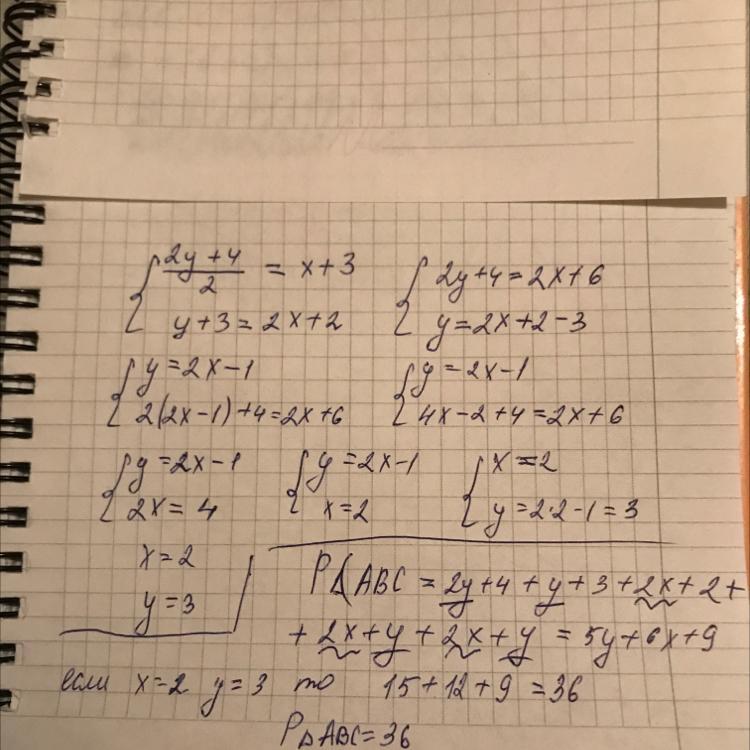 { (2y+4)/2 = x+3    { 2y+4=2x+6
{ y+3=2x+2    { y=2x+2-3
{ y=2x-1    { y=2x-1
{ 2(2x-1)+4=2x+6    { 4x-2+4=2x+6
{ y=2x-1    { y=2x-1    { x=2
{ 2x=4    { x=2    { y=2·2-1=3
x=2
y=3
P△ABC = 2y+4+y+3+2x+2+
+2x+y+2x+y = 5y+6x+9
если x=2 y=3 то 15+12+9=36
P△ABC=36